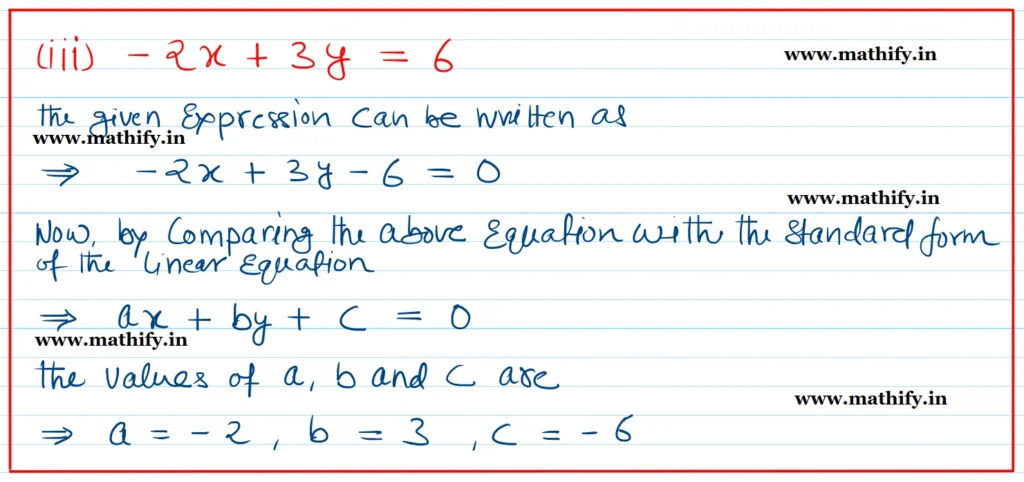 (iii) -2x + 3y = 6
www.mathify.in
the given Expression can be written as
www.mathify.in
⇒ -2x + 3y - 6 = 0
www.mathify.in
Now, by Comparing the above Equation with the Standard form
of the linear Equation
⇒ ax + by + c = 0
www.mathify.in
the values of a, b and c are
www.mathify.in
⇒ a = -2, b = 3, c = -6